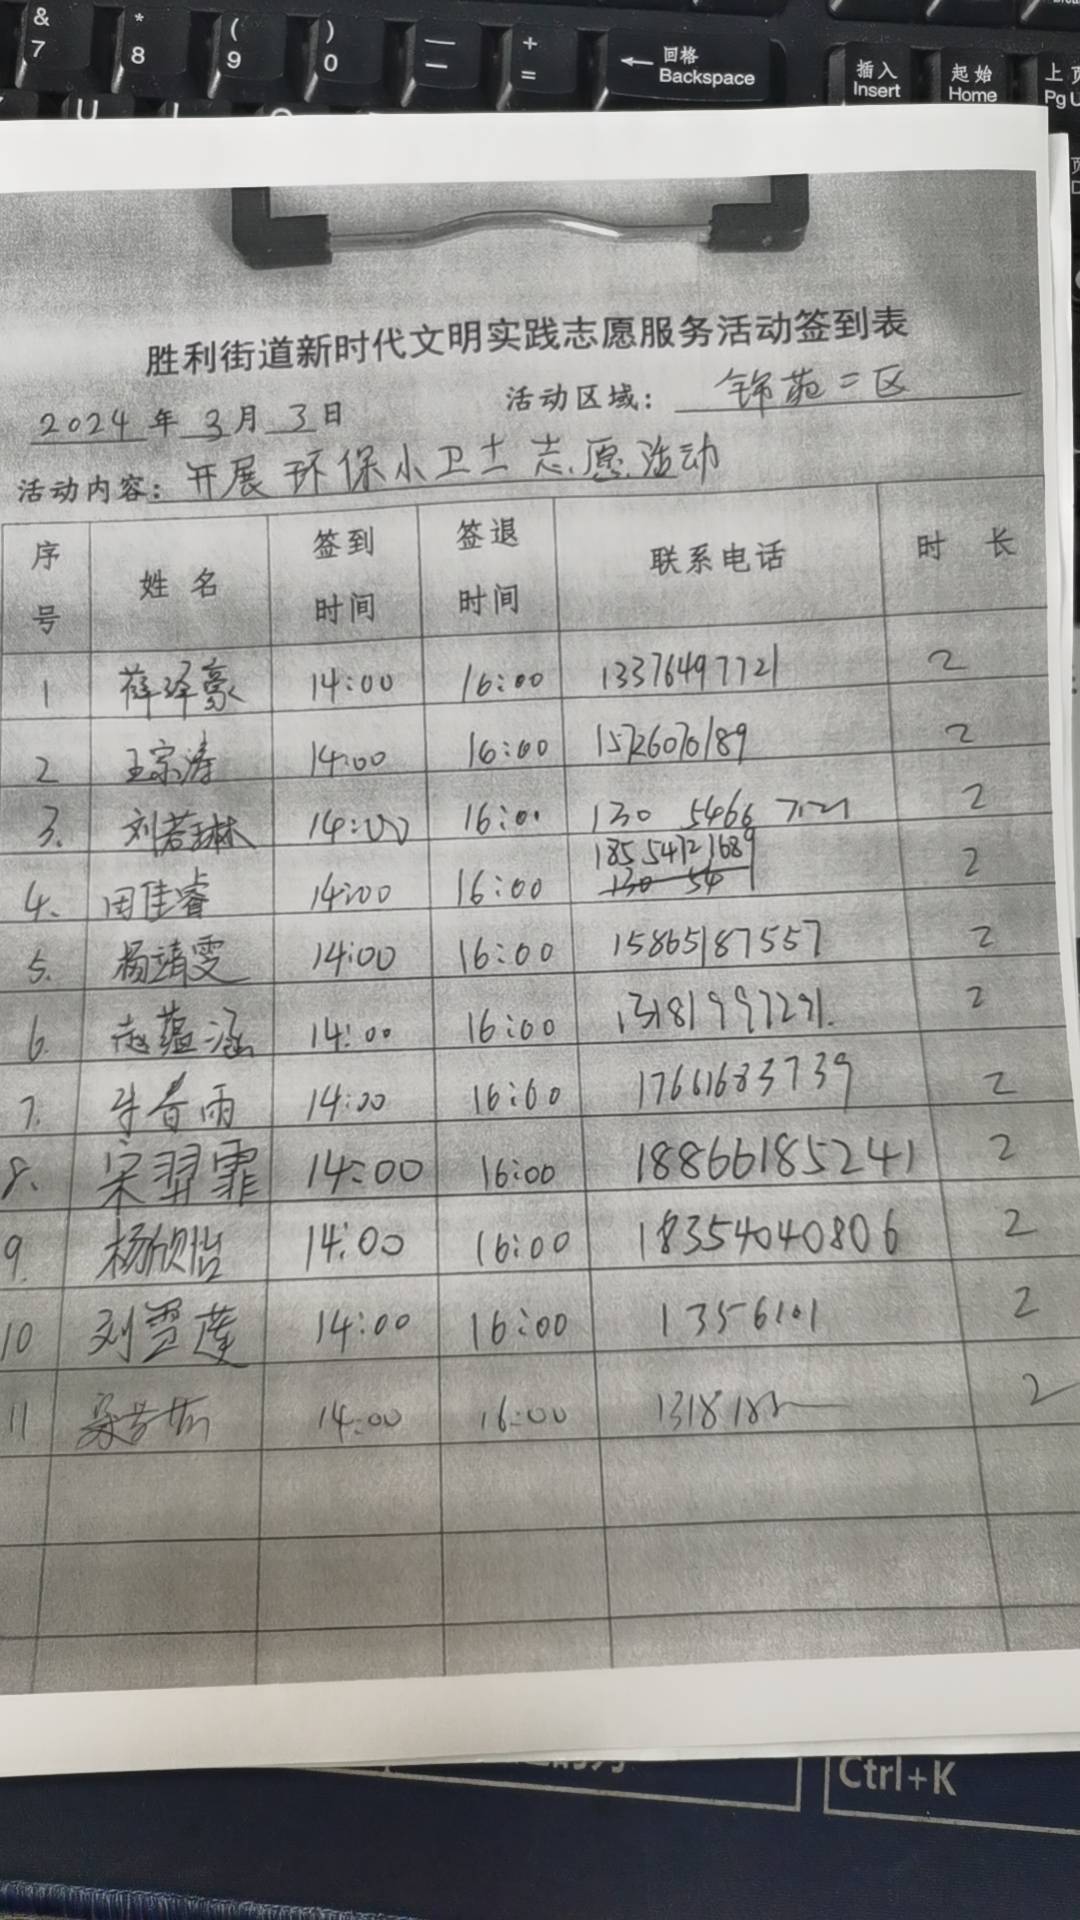 & 7
* 8
( 9
) 0
— –
+ =
← 回格 Backspace
插入 Insert
起始 Home
上页 Pg U
U
胜利街道新时代文明实践志愿服务活动签到表
2024年3月3日 活动区域：锦苑二区
活动内容：开展环保小卫士志愿活动
序号 姓名 签到时间 签退时间 联系电话 时长
1 薛泽豪 14:00 16:00 13376497721 2
2 王宗涛 14:00 16:00 15726070189 2
3. 刘若琳 14:00 16:00 130 5466 2
4. 田佳睿 14:00 16:00 18554721689 130 54 2
5. 杨靖雯 14:00 16:00 15865187557 2
6. 赵蕴涵 14:00 16:00 13181997291. 2
7. 牛春雨 14:00 16:00 17661683739 2
8. 宋羿霏 14:00 16:00 18866185241 2
9. 杨欣怡 14:00 16:00 18354040806 2
10 刘雪莲 14:00 16:00 1356101 2
11 14:00 16:00 13181 2
Ctrl+K